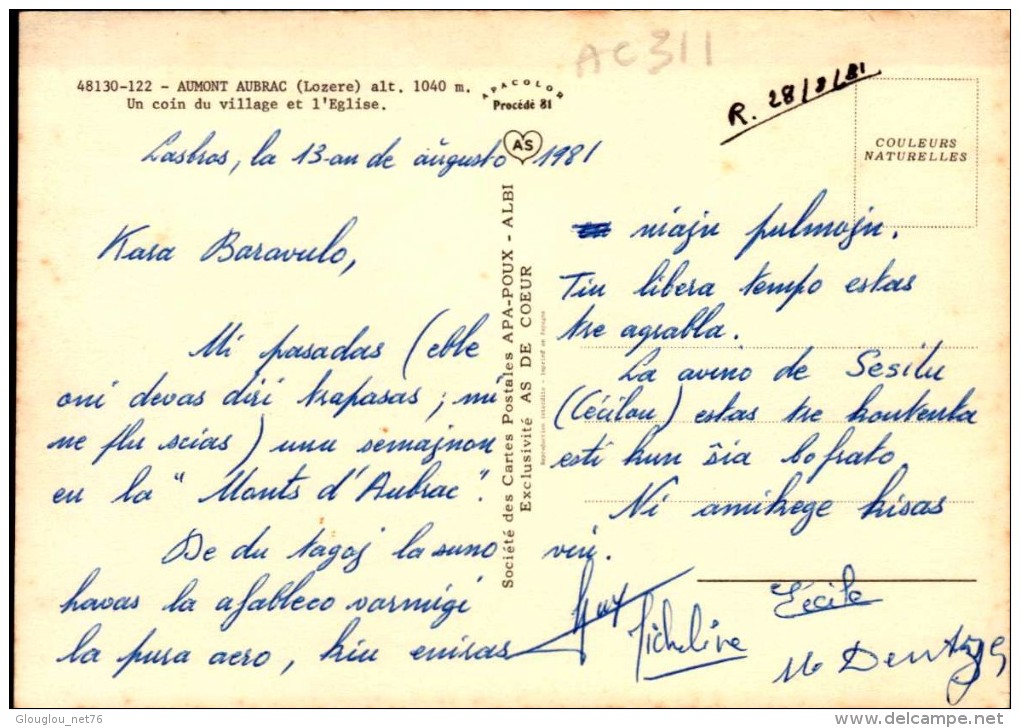 AC311
48130-122 - AUMONT AUBRAC (Lozere) alt. 1040 m.
Un coin du village et l'Eglise.
APACOLOR
Procédé 81
AS
R. 28/8/81
COULEURS
NATURELLES
Lasbros, la 13-an de aŭgusto 1981
Kara Baravulo,
Mi pasadas (eble
oni devas diri trapasas ; mi
ne plu scias) unu semajnon
en la "Monts d'Aubrac".
De du tagoj la suno
havas la afableco varmigi
la pura aero, kiu eniras
Société des Cartes Postales APA-POUX - ALBI
Exclusivité AS DE COEUR
Reproduction interdite - Imprimé en
niajn pulmojn.
Tiu libera tempo estas
tre agrabla.
La avino de Sesilu
(Cécilou) estas tre kontenta
esti kun ŝia bofrato
Ni amikege kisas
vin.
Guy
Micheline
Cécile
Glouglou_net76
http://www.delcampe.net